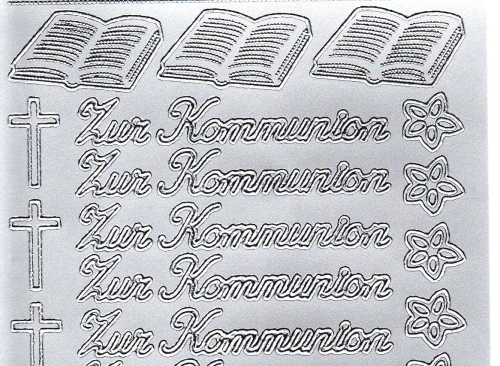 Zur Kommunion
Zur Kommunion
Zur Kommunion
Zur Kommunion
Zur Kommunion